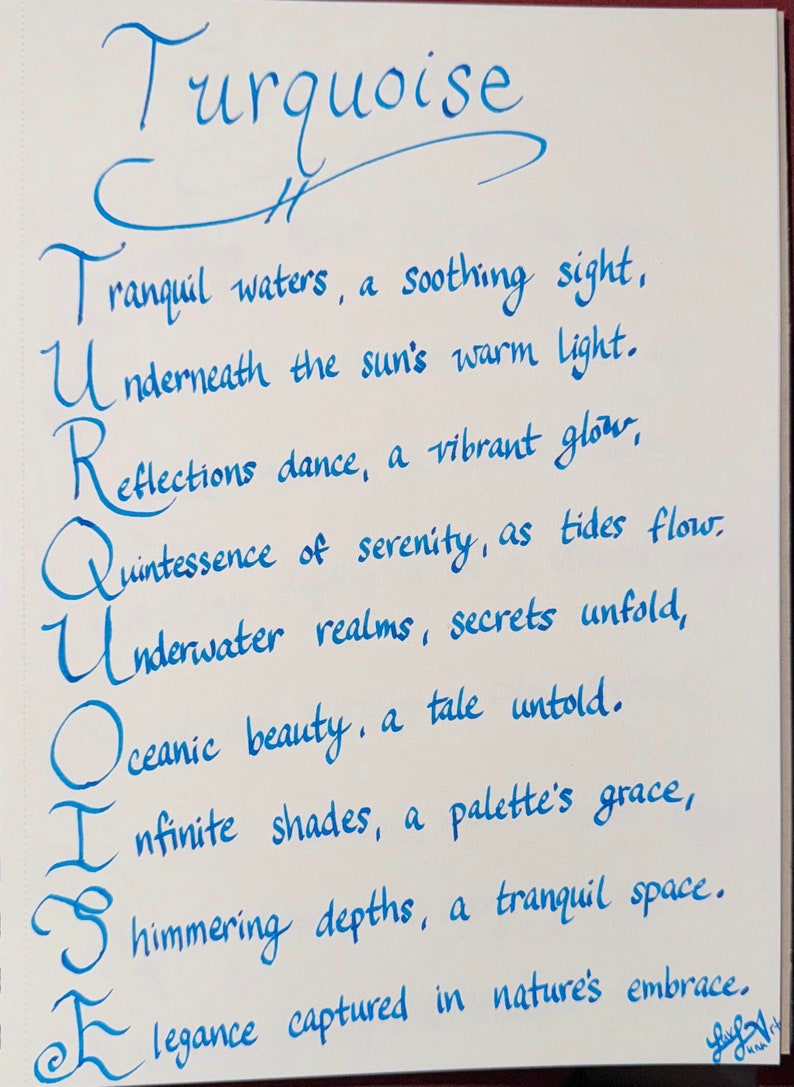 Turquoise
Tranquil waters, a soothing sight,
Underneath the sun's warm light.
Reflections dance, a vibrant glow,
Quintessence of serenity, as tides flow.
Underwater realms, secrets unfold,
Oceanic beauty, a tale untold.
Infinite shades, a palette's grace,
Shimmering depths, a tranquil space.
Elegance captured in nature's embrace.